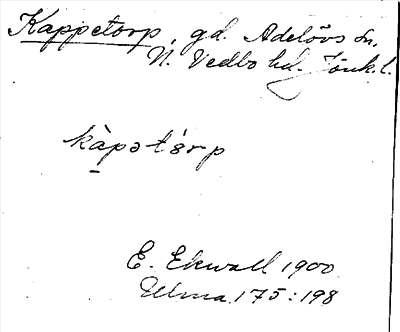 Kappetorp, gd. Adelövs sn,
N. Vedbo hd. Jönk. l.
kàpətórp
E. Ekwall 1900
Ulma 175:198